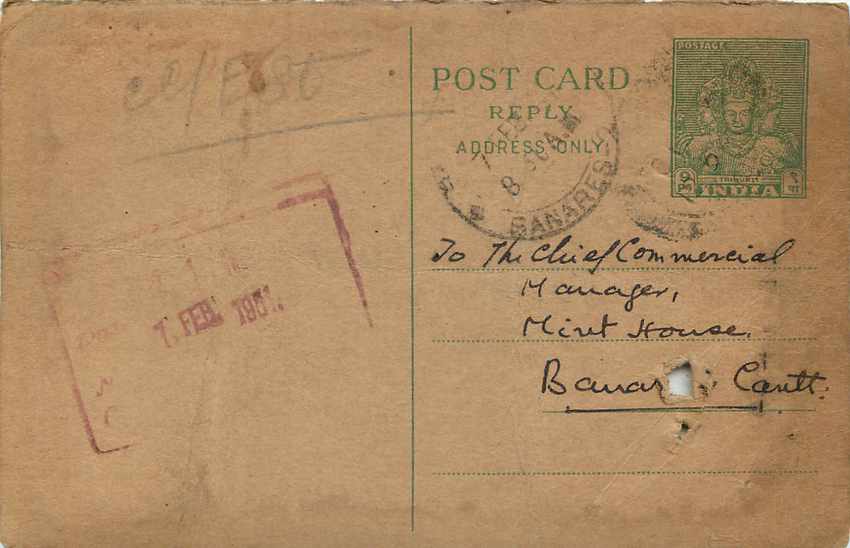 POST CARD
REPLY
ADDRESS ONLY.
POSTAGE
TRIMURTI
9 Ps
INDIA
९ पा
BANARES
8 30 A.M
7 FEB
7. FEB. 1951.
To The Chief Commercial
Manager,
Mint House.
Cantt.